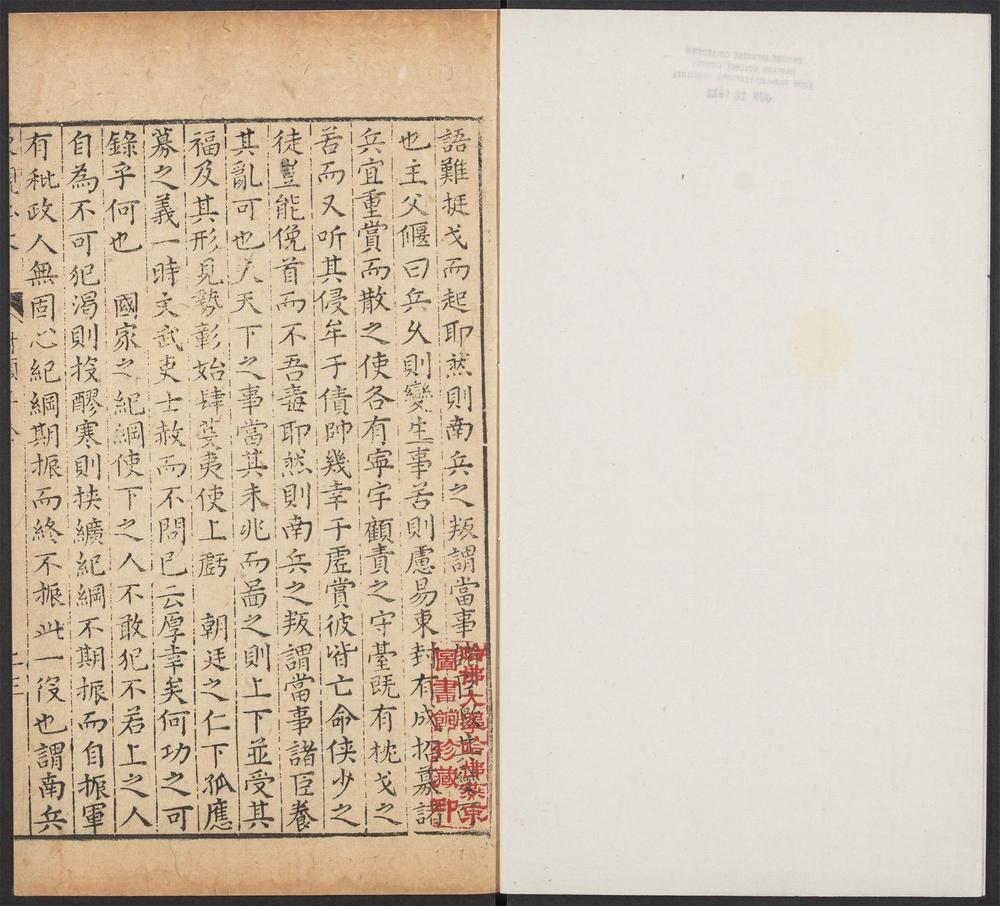 語難挺戈而起耶然則南兵之叛謂當事
也主父偃曰兵乆則變生事苦則慮易東封有成招募諸
兵宜重賞而散之使各有寕宇顧責之守臺既有枕戈之
苦而又听其侵牟于債帥幾幸于虛賞彼皆亡命俠少之
徒豈能俛首而不吾毒耶然則南兵之叛謂當事諸臣養
其亂可也夫天下之事當其未兆而啚之則上下並受其
福及其形見勢彰始肆芟夷使上虧 朝廷之仁下孤應
募之義一時文武吏士赦而不問已云厚幸矣何功之可
錄乎何也 國家之紀綱使下之人不敢犯不若上之人
自為不可犯渴則投醪寒則挾纊紀綱不期振而自振軍
有秕政人無固心紀綱期振而終不振此一役也謂南兵
哈佛大學哈佛燕京
圖書館珍藏印
CHINESE-JAPANESE COLLECTION
HARVARD COLLEGE LIBRARY
JUN 1932